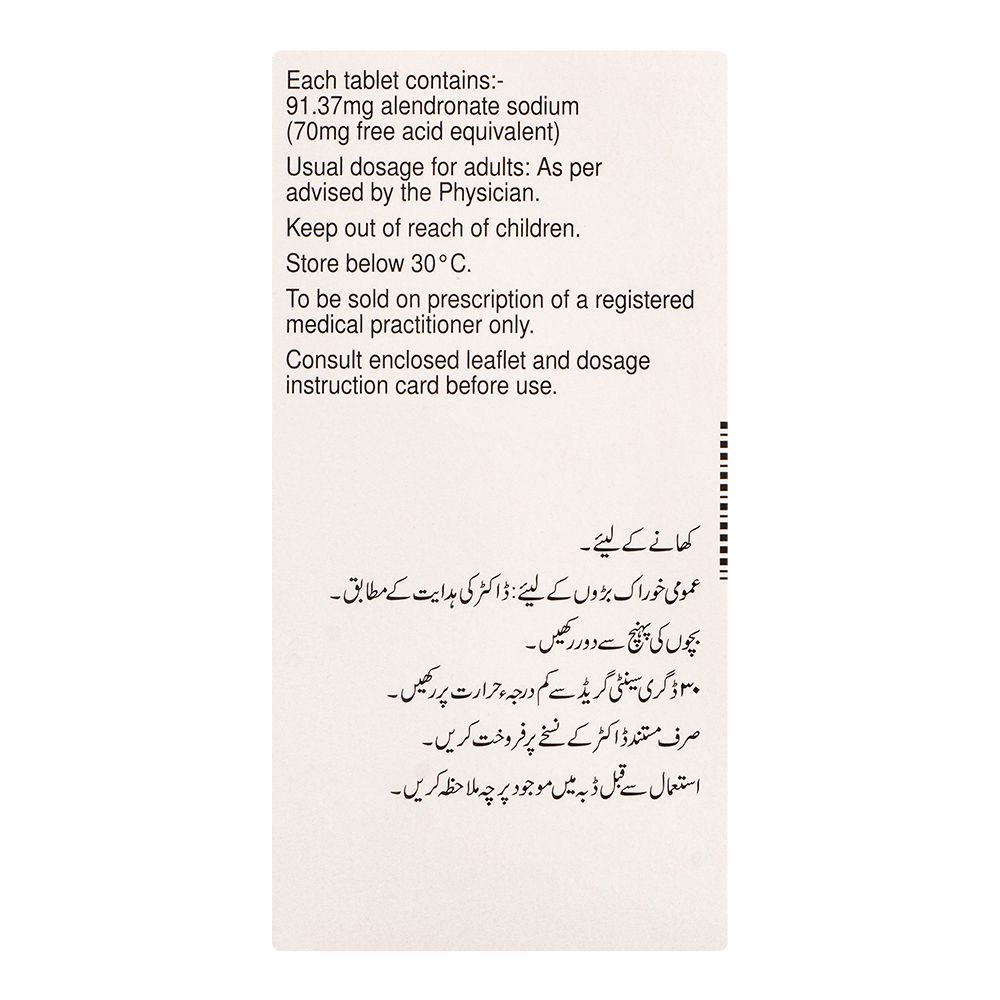 Each tablet contains:-
91.37mg alendronate sodium
(70mg free acid equivalent)
Usual dosage for adults: As per
advised by the Physician.
Keep out of reach of children.
Store below 30°C.
To be sold on prescription of a registered
medical practitioner only.
Consult enclosed leaflet and dosage
instruction card before use.
کھانے کے لیئے۔
عمومی خوراک بڑوں کے لیئے: ڈاکٹر کی ہدایت کے مطابق۔
بچوں کی پہنچ سے دور رکھیں۔
۳۰ ڈگری سینٹی گریڈ سے کم درجہء حرارت پر رکھیں۔
صرف مستند ڈاکٹر کے نسخے پر فروخت کریں۔
استعمال سے قبل ڈبہ میں موجود پرچہ ملاحظہ کریں۔